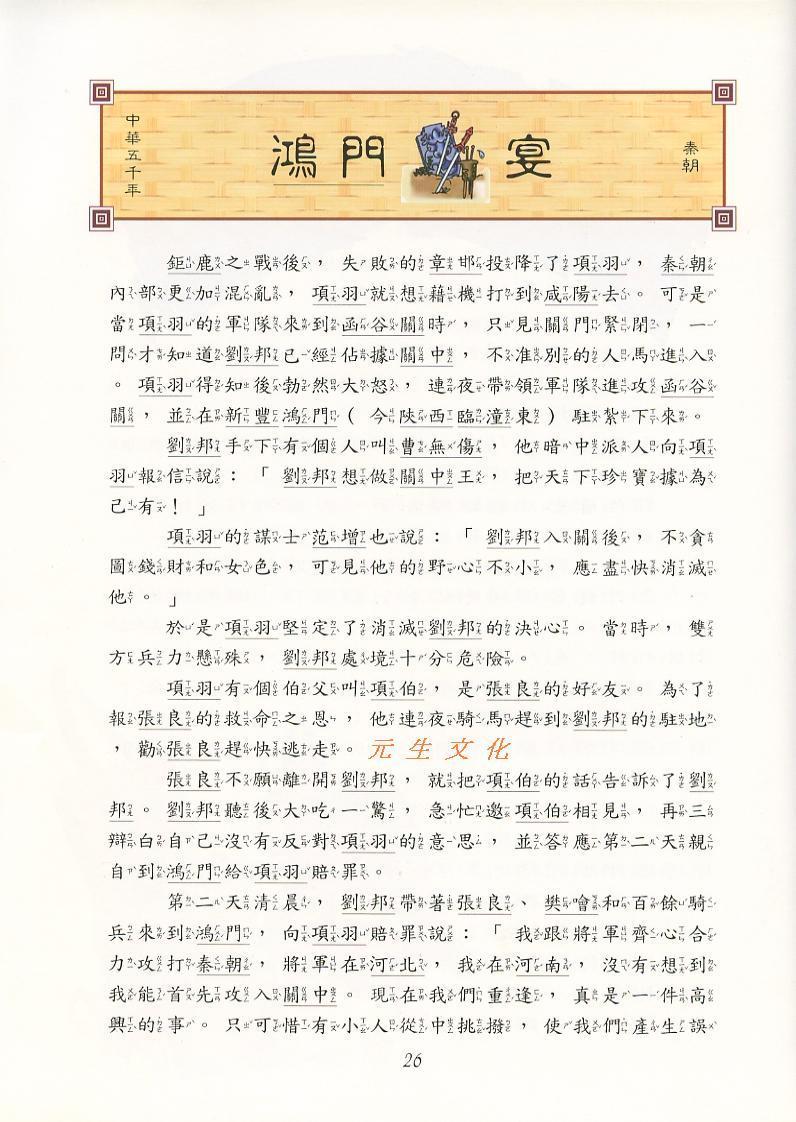 中華五千年
鴻門宴
秦朝
鉅鹿之戰後，失敗的章邯投降了項羽，秦朝
內部更加混亂，項羽就想藉機打到咸陽去。可是
當項羽的軍隊來到函谷關時，只見關門緊閉，一
問才知道劉邦已經佔據關中，不准別的人馬進入
。項羽得知後勃然大怒，連夜帶領軍隊進攻函谷
關，並在新豐鴻門（今陝西臨潼東）駐紮下來。
劉邦手下有個人叫曹無傷，他暗中派人向項
羽報信說：「劉邦想做關中王，把天下珍寶據為
己有！」
項羽的謀士范增也說：「劉邦入關後，不貪
圖錢財和女色，可見他的野心不小，應盡快消滅
他。」
於是項羽堅定了消滅劉邦的決心。當時，雙
方兵力懸殊，劉邦處境十分危險。
項羽有個伯父叫項伯，是張良的好友。為了
報張良的救命之恩，他連夜騎馬趕到劉邦的駐地
，勸張良趕快逃走。元生文化
張良不願離開劉邦，就把項伯的話告訴了劉
邦。劉邦聽後大吃一驚，急忙邀項伯相見，再三
辯白自己沒有反對項羽的意思，並答應第二天親
自到鴻門給項羽賠罪。
第二天清晨，劉邦帶著張良、樊噲和百餘騎
兵來到鴻門，向項羽賠罪說：「我跟將軍齊心合
力攻打秦朝，將軍在河北，我在河南，沒有想到
我能首先攻入關中。現在我們重逢，真是一件高
興的事。只可惜有小人從中挑撥，使我們產生誤
26